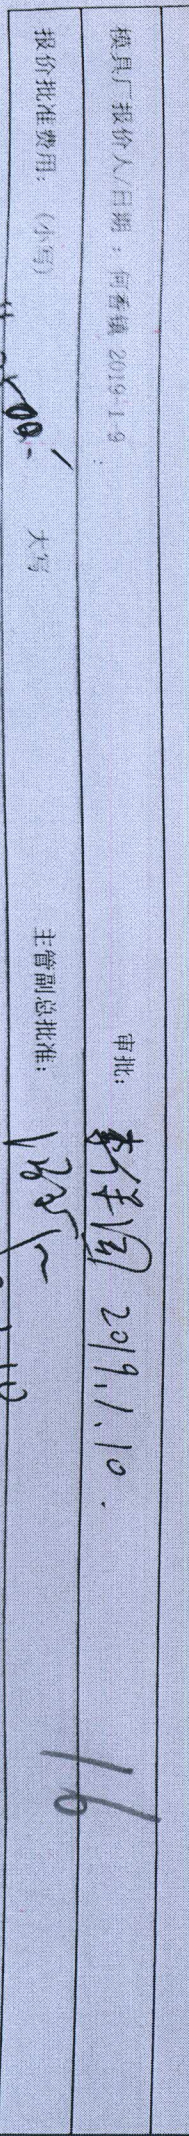 模具厂报价人/日期：何香镇 2019-1-9 审批： 2019.1.10.
报价批准费用：（小写） 大写 主管副总批准：
16